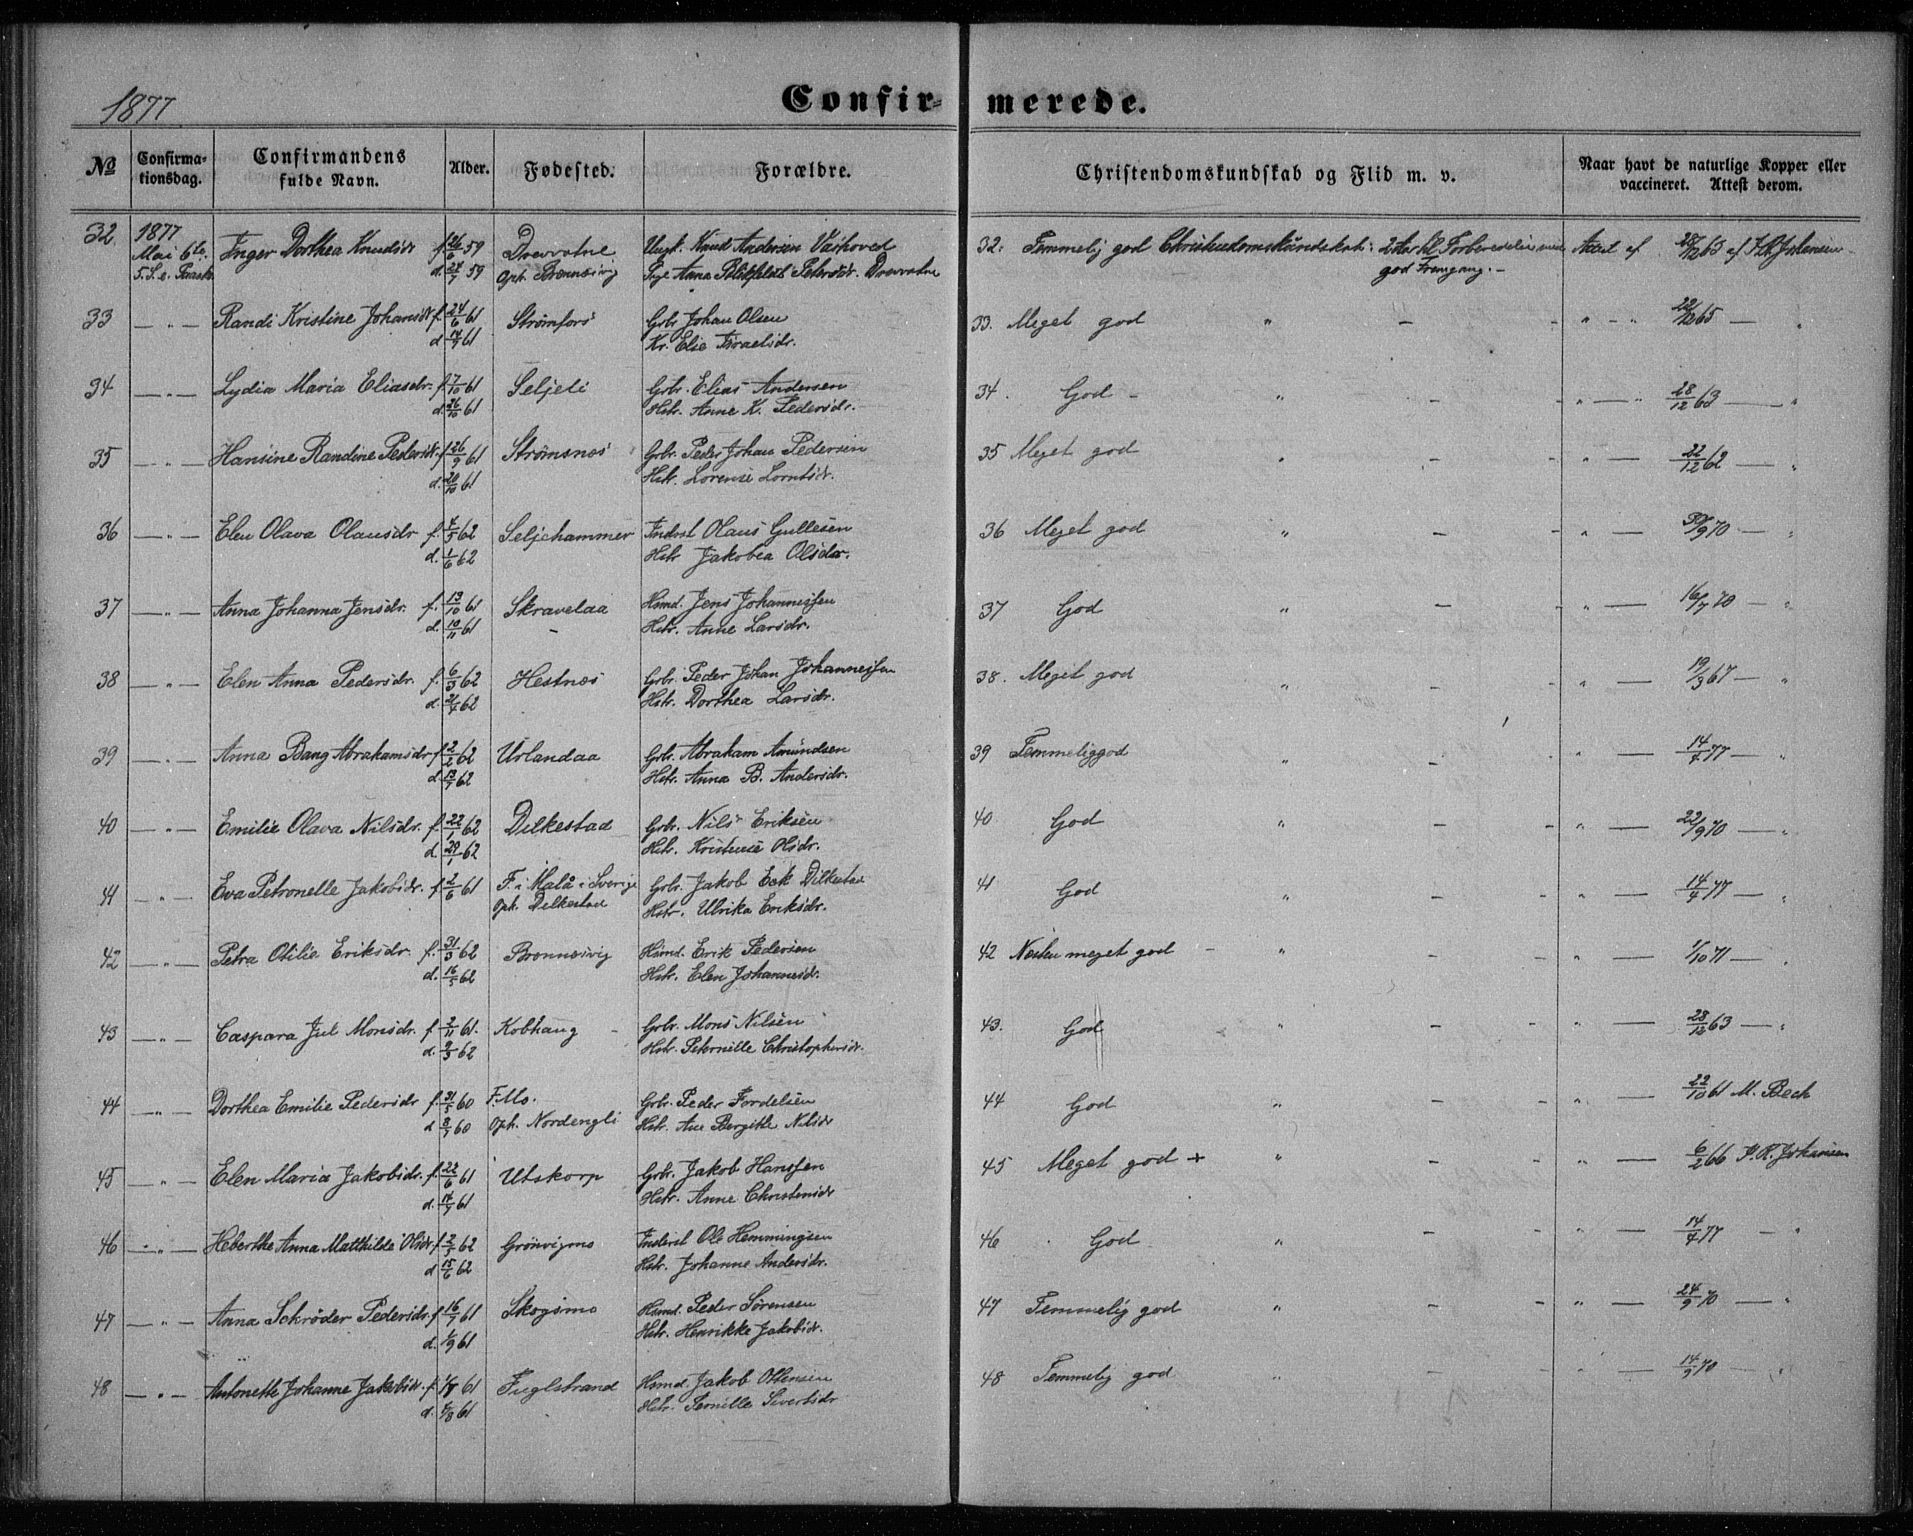 1877
Confir-
merede.
No
Confirma-
tionsdag.
Confirmandens
fulde Navn.
Alder.
Fødested.
Forældre.
Christendomskundskab og Flid m. v.
Naar havt de naturlige Kopper eller
vaccineret. Attest derom.
32 1877 Mai 6te Inger Dorthea Knudsdr f. 26/6 59 Drevvatne Ungk. Knud Andersen Vashoved 32. Temmelig god Christendomskundskab; god Fremgang.- Attest af 28/12 65 af Johansen
d. 24/7 59 Opt. Brennesvig Pige Anna Petersdr. Drevvatne
33 — " — Randi Kristine Johansdr f. 24/6 61 Strømfors Grbr Johan Olsen 33. Meget god " — - " - 22/12 65 — "
d. 14/7 61 Kr. Else Israelsdr.
34 — " — Lydia Maria Eliasdr. f. 7/10 61 Seljeli Grbr. Elias Andersen 34. God - " — - " — 28/12 63 — "
d. 26/10 61 Hstr. Anne K. Pedersdr.
35 — " — Hansine Randine Pedersdr. f. 26/9 61 Strømsnes Grbr. Peder Johan Pedersen 35 Meget god " - - " — 22/12 62 — "
d. 20/10 61 Hstr. Lorense Lorntsdr.
36 — " — Elen Olava Olausdr f. 4/5 62 Seljehammer Inderst Olaus Gullesen 36 Meget god " — - " — 30/9 70 — "
d. 1/6 62 Hstr Jakobea Olsdtr.
37 — " — Anna Johanna Jensdr. f. 13/10 61 Skravelaa Hsmd. Jens Johannessen 37 God " — - " — 16/7 70 — "
d. 10/11 61 Hstr. Anne Larsdr.
38 — " — Elen Anna Pedersdr. f. 6/3 62 Hestnes Grbr. Peder Johan Johannessen 38. Meget god " - - " — 19/3 67 — "
d. 21/4 62 Hstr. Dorthea Larsdr.
39 — " — Anna Bang Abrahamsdr f. 2/2 62 Urlandaa Grbr. Abraham Amundsen 39 Temmelig god " - - " — 14/4 77 — "
d. 62 Hstr. Anna B. Andersdr.
40 — " — Emilie Olava Nilsdr. f. 22/1 62 Dilkestad Grbr. Nils Eriksen 40 God " - - " — 22/9 70 — "
d. 29/1 62 Hstr. Kristense Olsdr.
41 — " — Eva Petronelle Jakobsdr. f. 2/6 61 F. i Malå i Sverige Grbr. Jakob Eck Dilkestad 41 God " - - " — 14/4 77 — "
Opt. Dilkestad Hstr. Ulrika Eriksdr.
42 — " — Petra Otilie Eriksdr. f. 31/3 62 Brennesvig Hsmd. Erik Pedersen 42 Næsten meget god - " - - " — 1/10 71 — "
d. 16/5 62 Hstr. Elen Johannesdr.
43 — " — Caspara Jul Monsdr. f. 2/11 61. Kobhaug - Grbr. Mons Nilsen 43. God " - - " — 28/12 63 — "
d. 9/3 62 Hstr. Peternille Christophersdr.
44 — " — Dorthea Emilie Pedersdr f. 31/5 60 F. Mo. Grbr. Peder Fordelsen 44 God " - - " — 22/10 61 M. Bech
d. 8/7 60 Opt. Nordengli Hstr. Ane Bergitte Nilsdr
45 — " — Elen Maria Jakobsdr. f. 22/6 61 Utskorp Grbr. Jakob Hanssen 45 Meget god + " - - " — 6/2 66 J. R. Johansen
d. 14/7 61 Hstr. Anne Christensdr
46 — " — Heberthe Anna Matthilde Olsdr. f. 62 Grønvigmo Inderst Ole Hemmingsen 46 God " - " — 14/4 77 — "
d. 15/6 62 Hstr. Johanne Andersdr.
47 — " — Anna Schrøder Pedersdr. f. 16/7 61 Skogsmo Hsmd. Peder Sørensen 47 Temmelig god " - - " — 24/9 70 — "
d. 1/9 61 Hstr. Henrikke Jakobsdr.
48 — " — Antonette Johanne Jakobsdr. f. 61 Fuglstrand Hsmd. Jakob Ottensen 48 Temmelig god " - - " — 14/9 70 - "
d. 61 Hstr. Pernille Sivertsdr